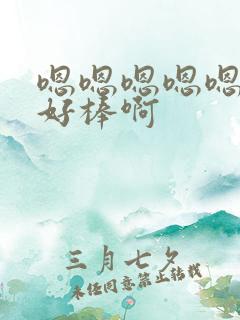 嗯嗯嗯嗯嗯
好棒啊
三月七夕
未经同意禁止转载